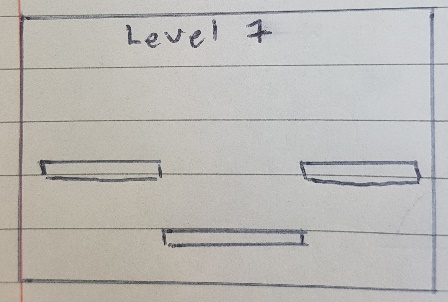 Level 7